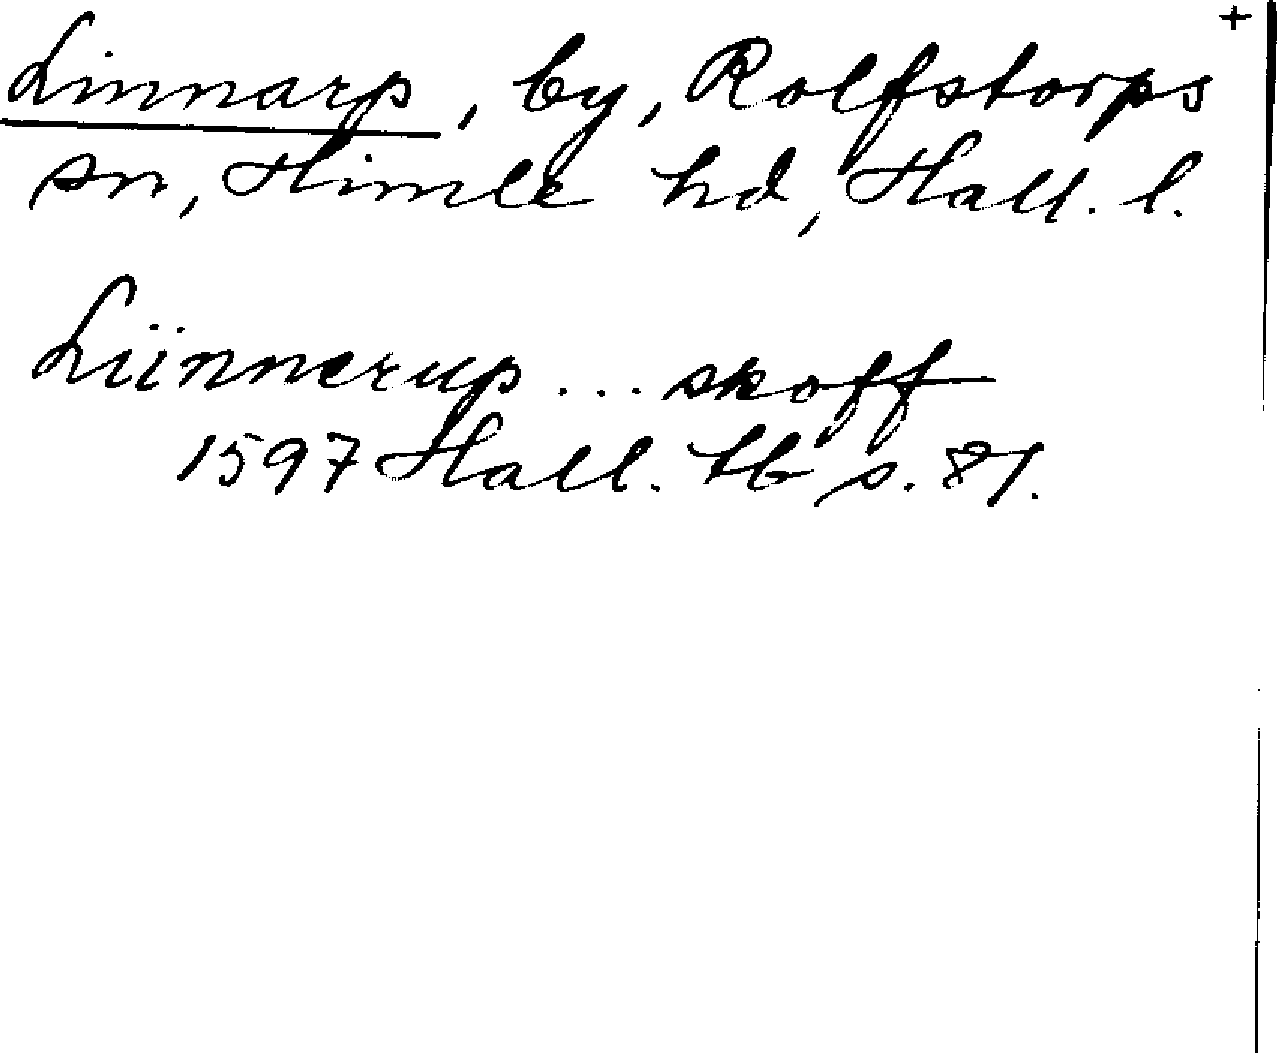 +
Linnarp, by, Rolfstorps
sn, Himle hd, Hall. l.
Lünnerup ... skoff
1597 Hall. tb s. 81.